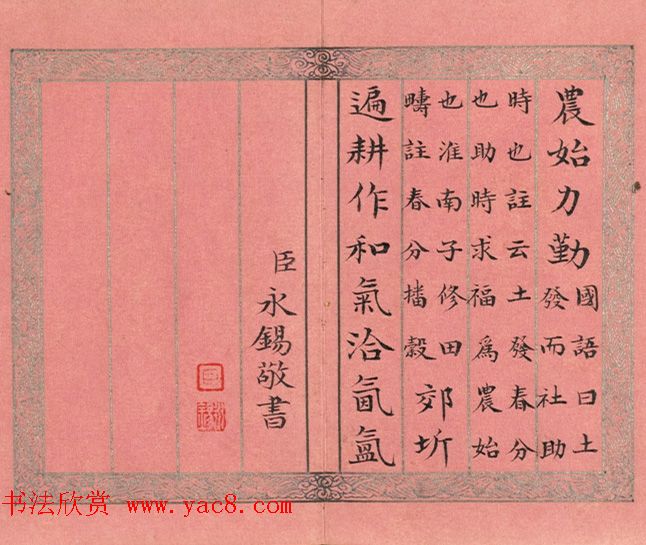 農始力勤國語曰土
發而社助
時也註云土發春分
也助時求福爲農始
也淮南子修田
疇註春分播穀郊圻
遍耕作和氣洽氤氳
臣永錫敬書
臣
永錫
书法欣赏 www.yac8.com